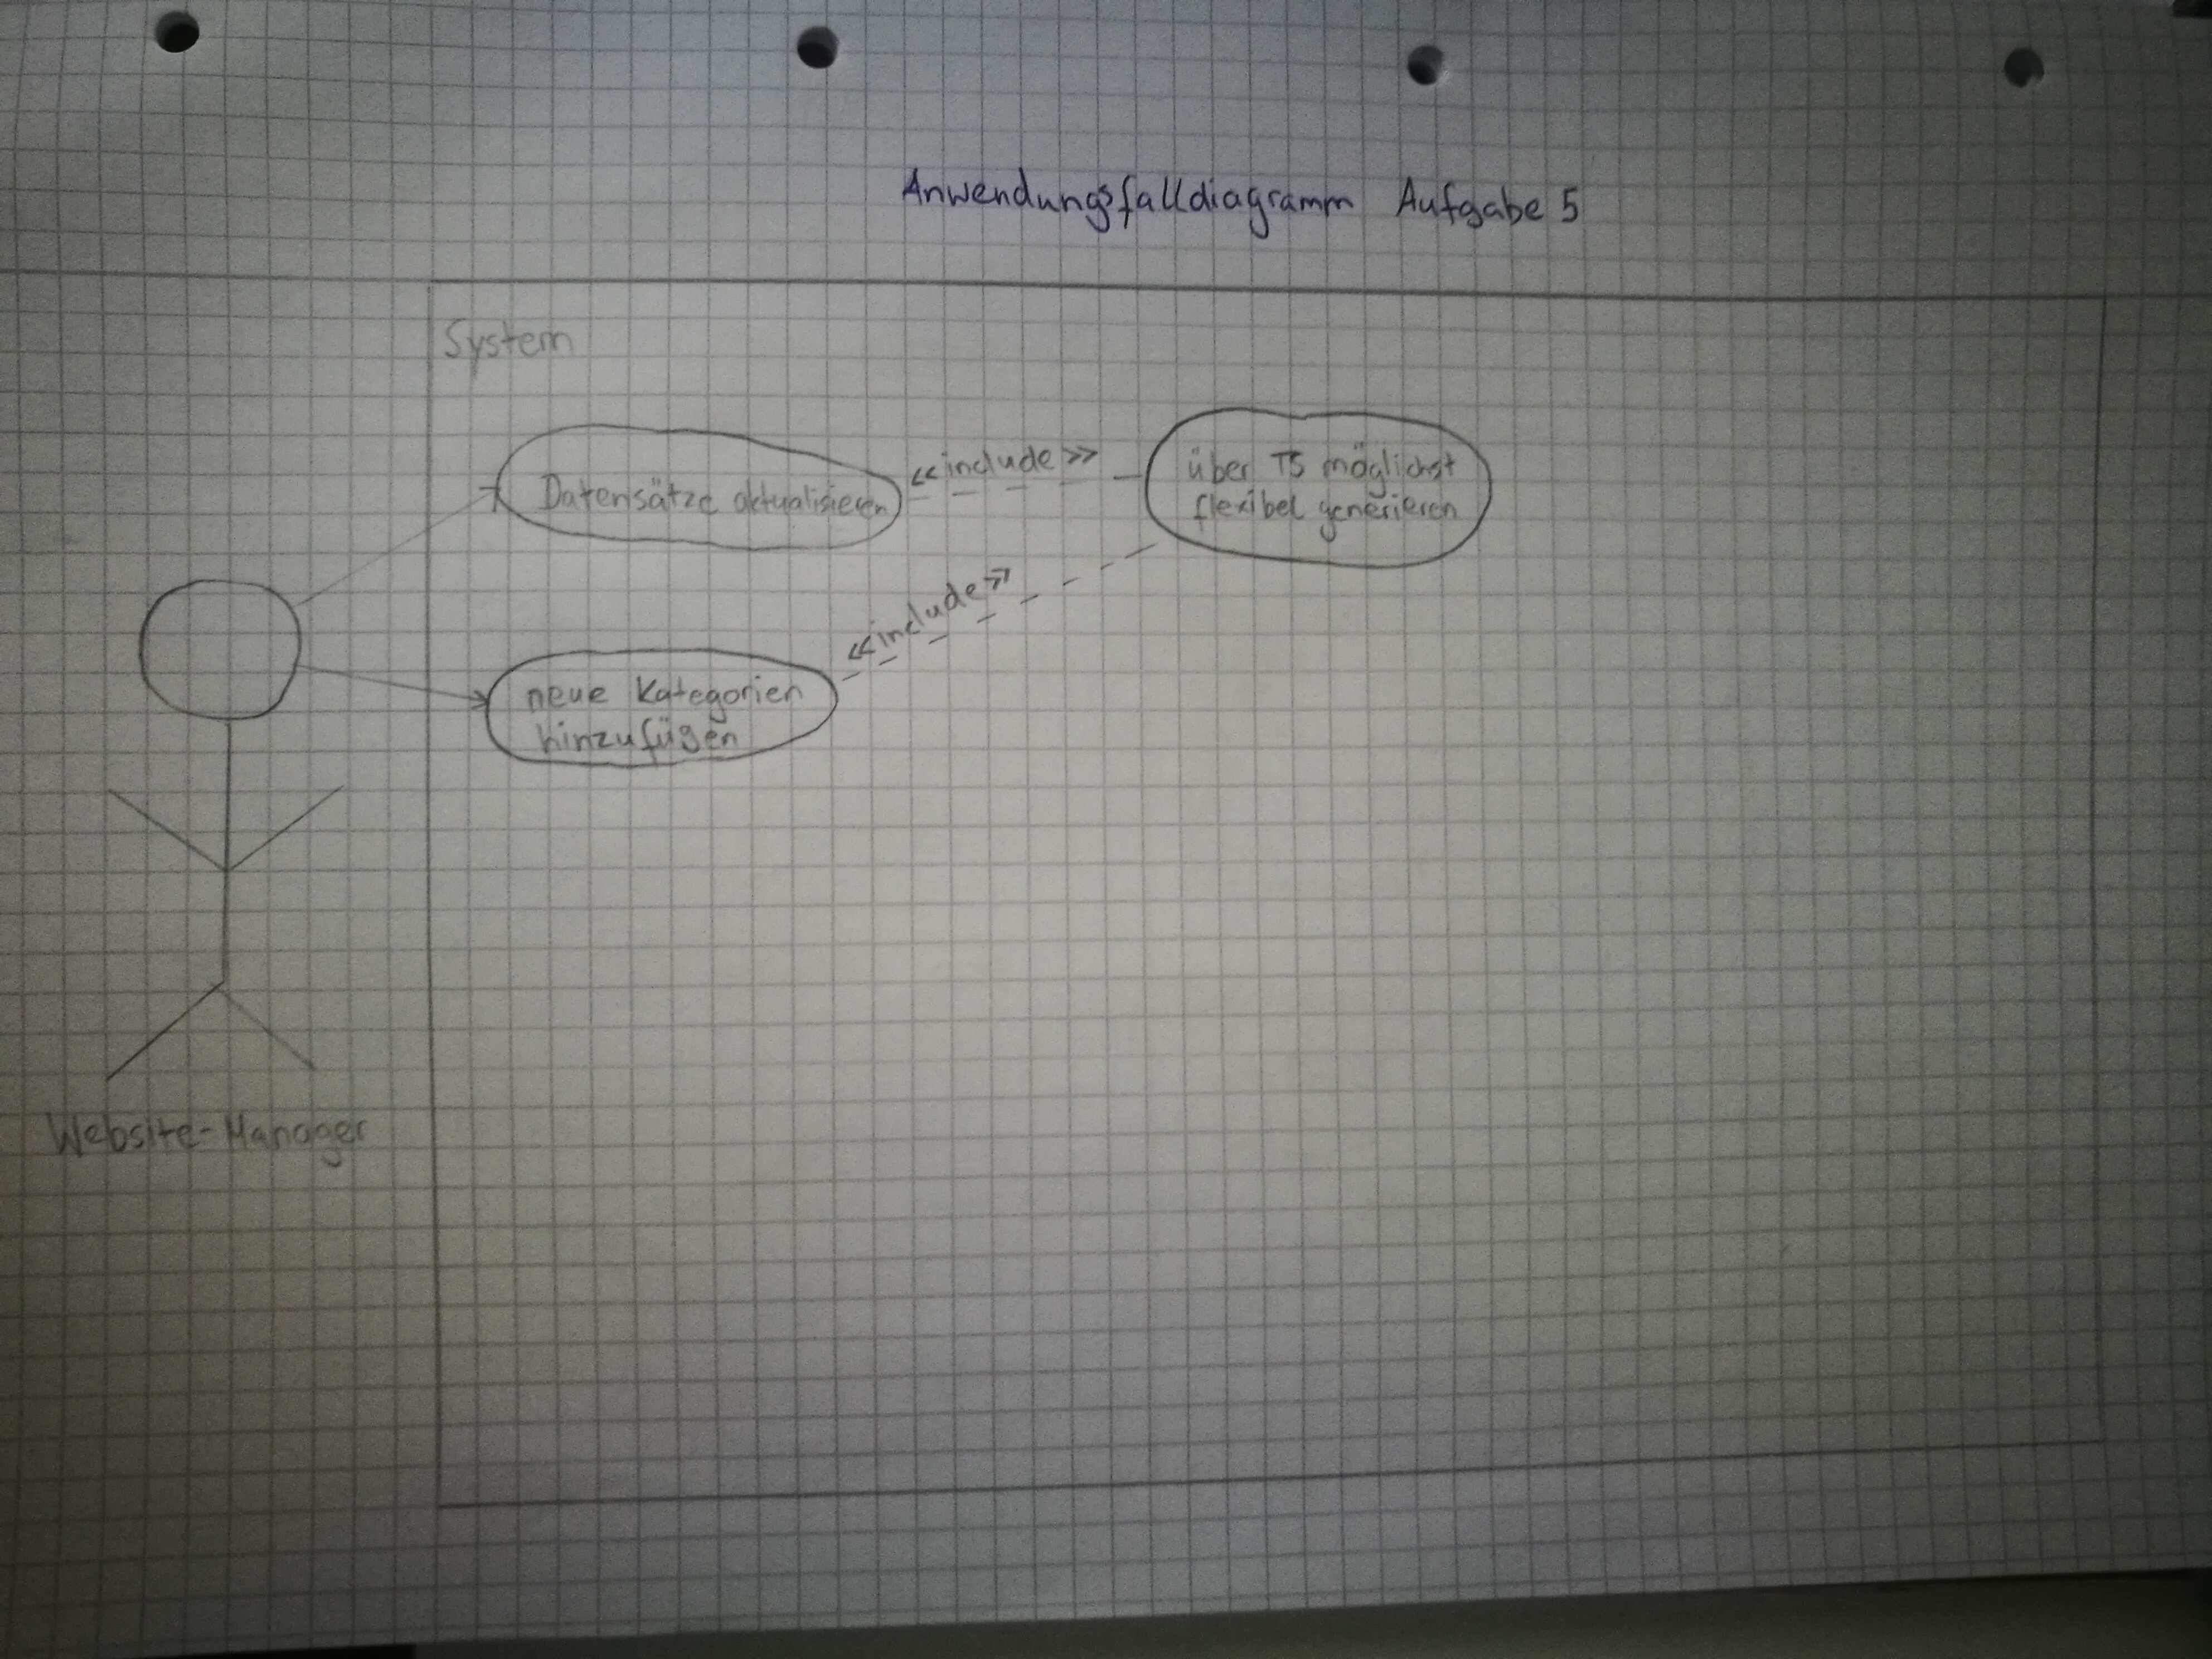 Anwendungsfalldiagramm Aufgabe 5
System
Datensätze aktualisieren
<<include>>
über TS möglichst
flexibel generieren
<<include>>
neue Kategorien
hinzufügen
Website-Manager